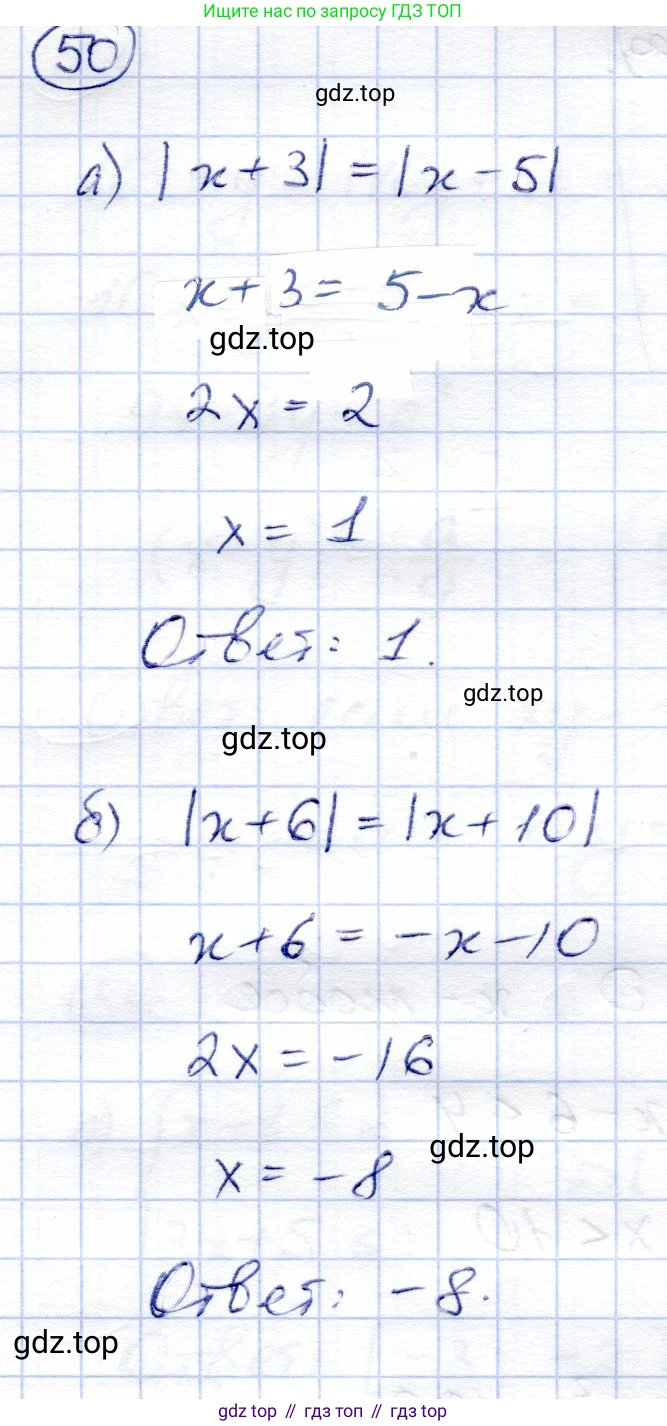 Ищите нас по запросу ГДЗ ТОП
50
gdz.top
а) |x+3| = |x-5|
x+3 = 5-x
gdz.top
2x = 2
x = 1
Ответ: 1.
gdz.top
gdz.top
б) |x+6| = |x+10|
x+6 = -x-10
2x = -16
gdz.top
x = -8
Ответ: -8.
gdz.top
gdz.top // гдз топ // гдз.top